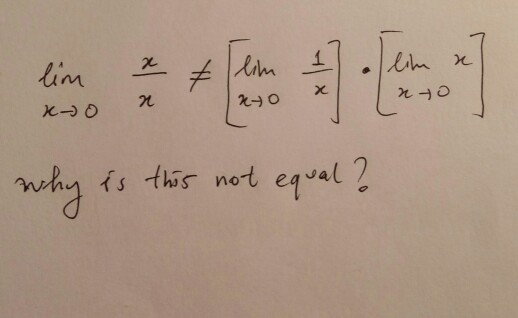 lim x→0 x/x ≠ [lim x→0 1/x] · [lim x→0 x]
why is this not equal?